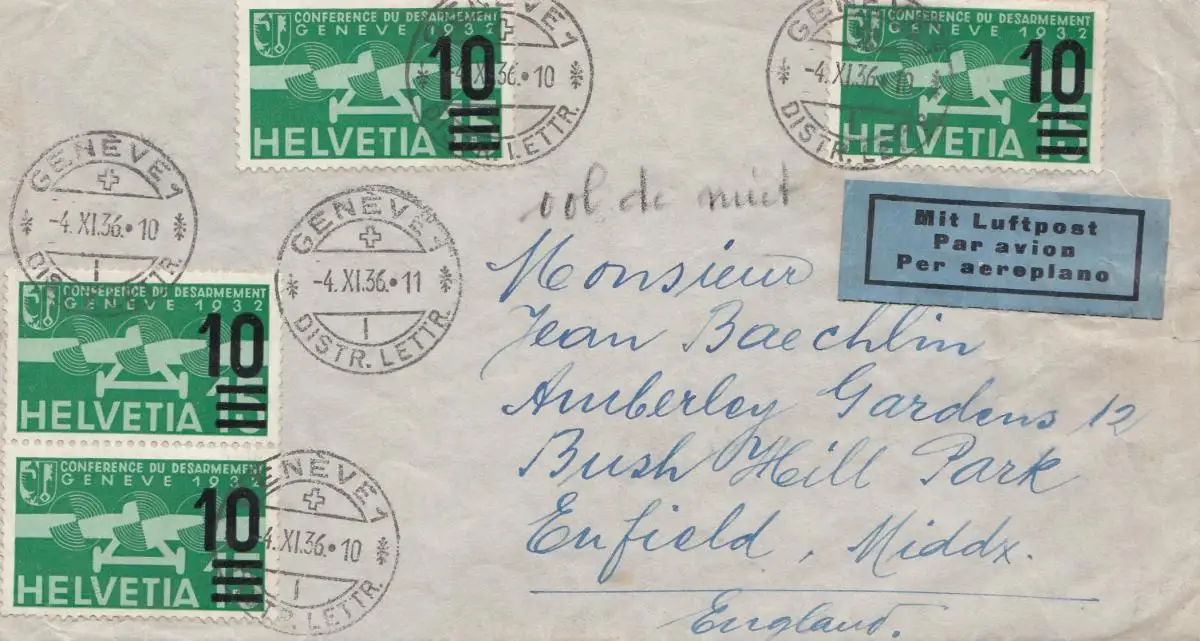 CONFERENCE DU DESARMEMENT
GENEVE 1932
10
HELVETIA
GENÈVE 1
-4.XI.36•10
DISTR. LETTR.
CONFERENCE DU DESARMEMENT
GENEVE 1932
10
HELVETIA 15
GENÈVE 1
-4.XI.36•10
DISTR. LETTR.
GENÈVE 1
-4.XI.36•10
1
DISTR. LETTR.
GENÈVE 1
-4.XI.36•11
1
DISTR. LETTR.
vol de nuit
Mit Luftpost
Par avion
Per aeroplano
Monsieur
Jean Baechlin
Amberley Gardens 12
Bush Hill Park
Enfield, Middx.
England.
CONFERENCE DU DESARMEMENT
GENEVE 1932
10
HELVETIA
CONFERENCE DU DESARMEMENT
GENEVE 1932
10
HELVETIA 15
GENÈVE 1
-4.XI.36•10
1
DISTR. LETTR.